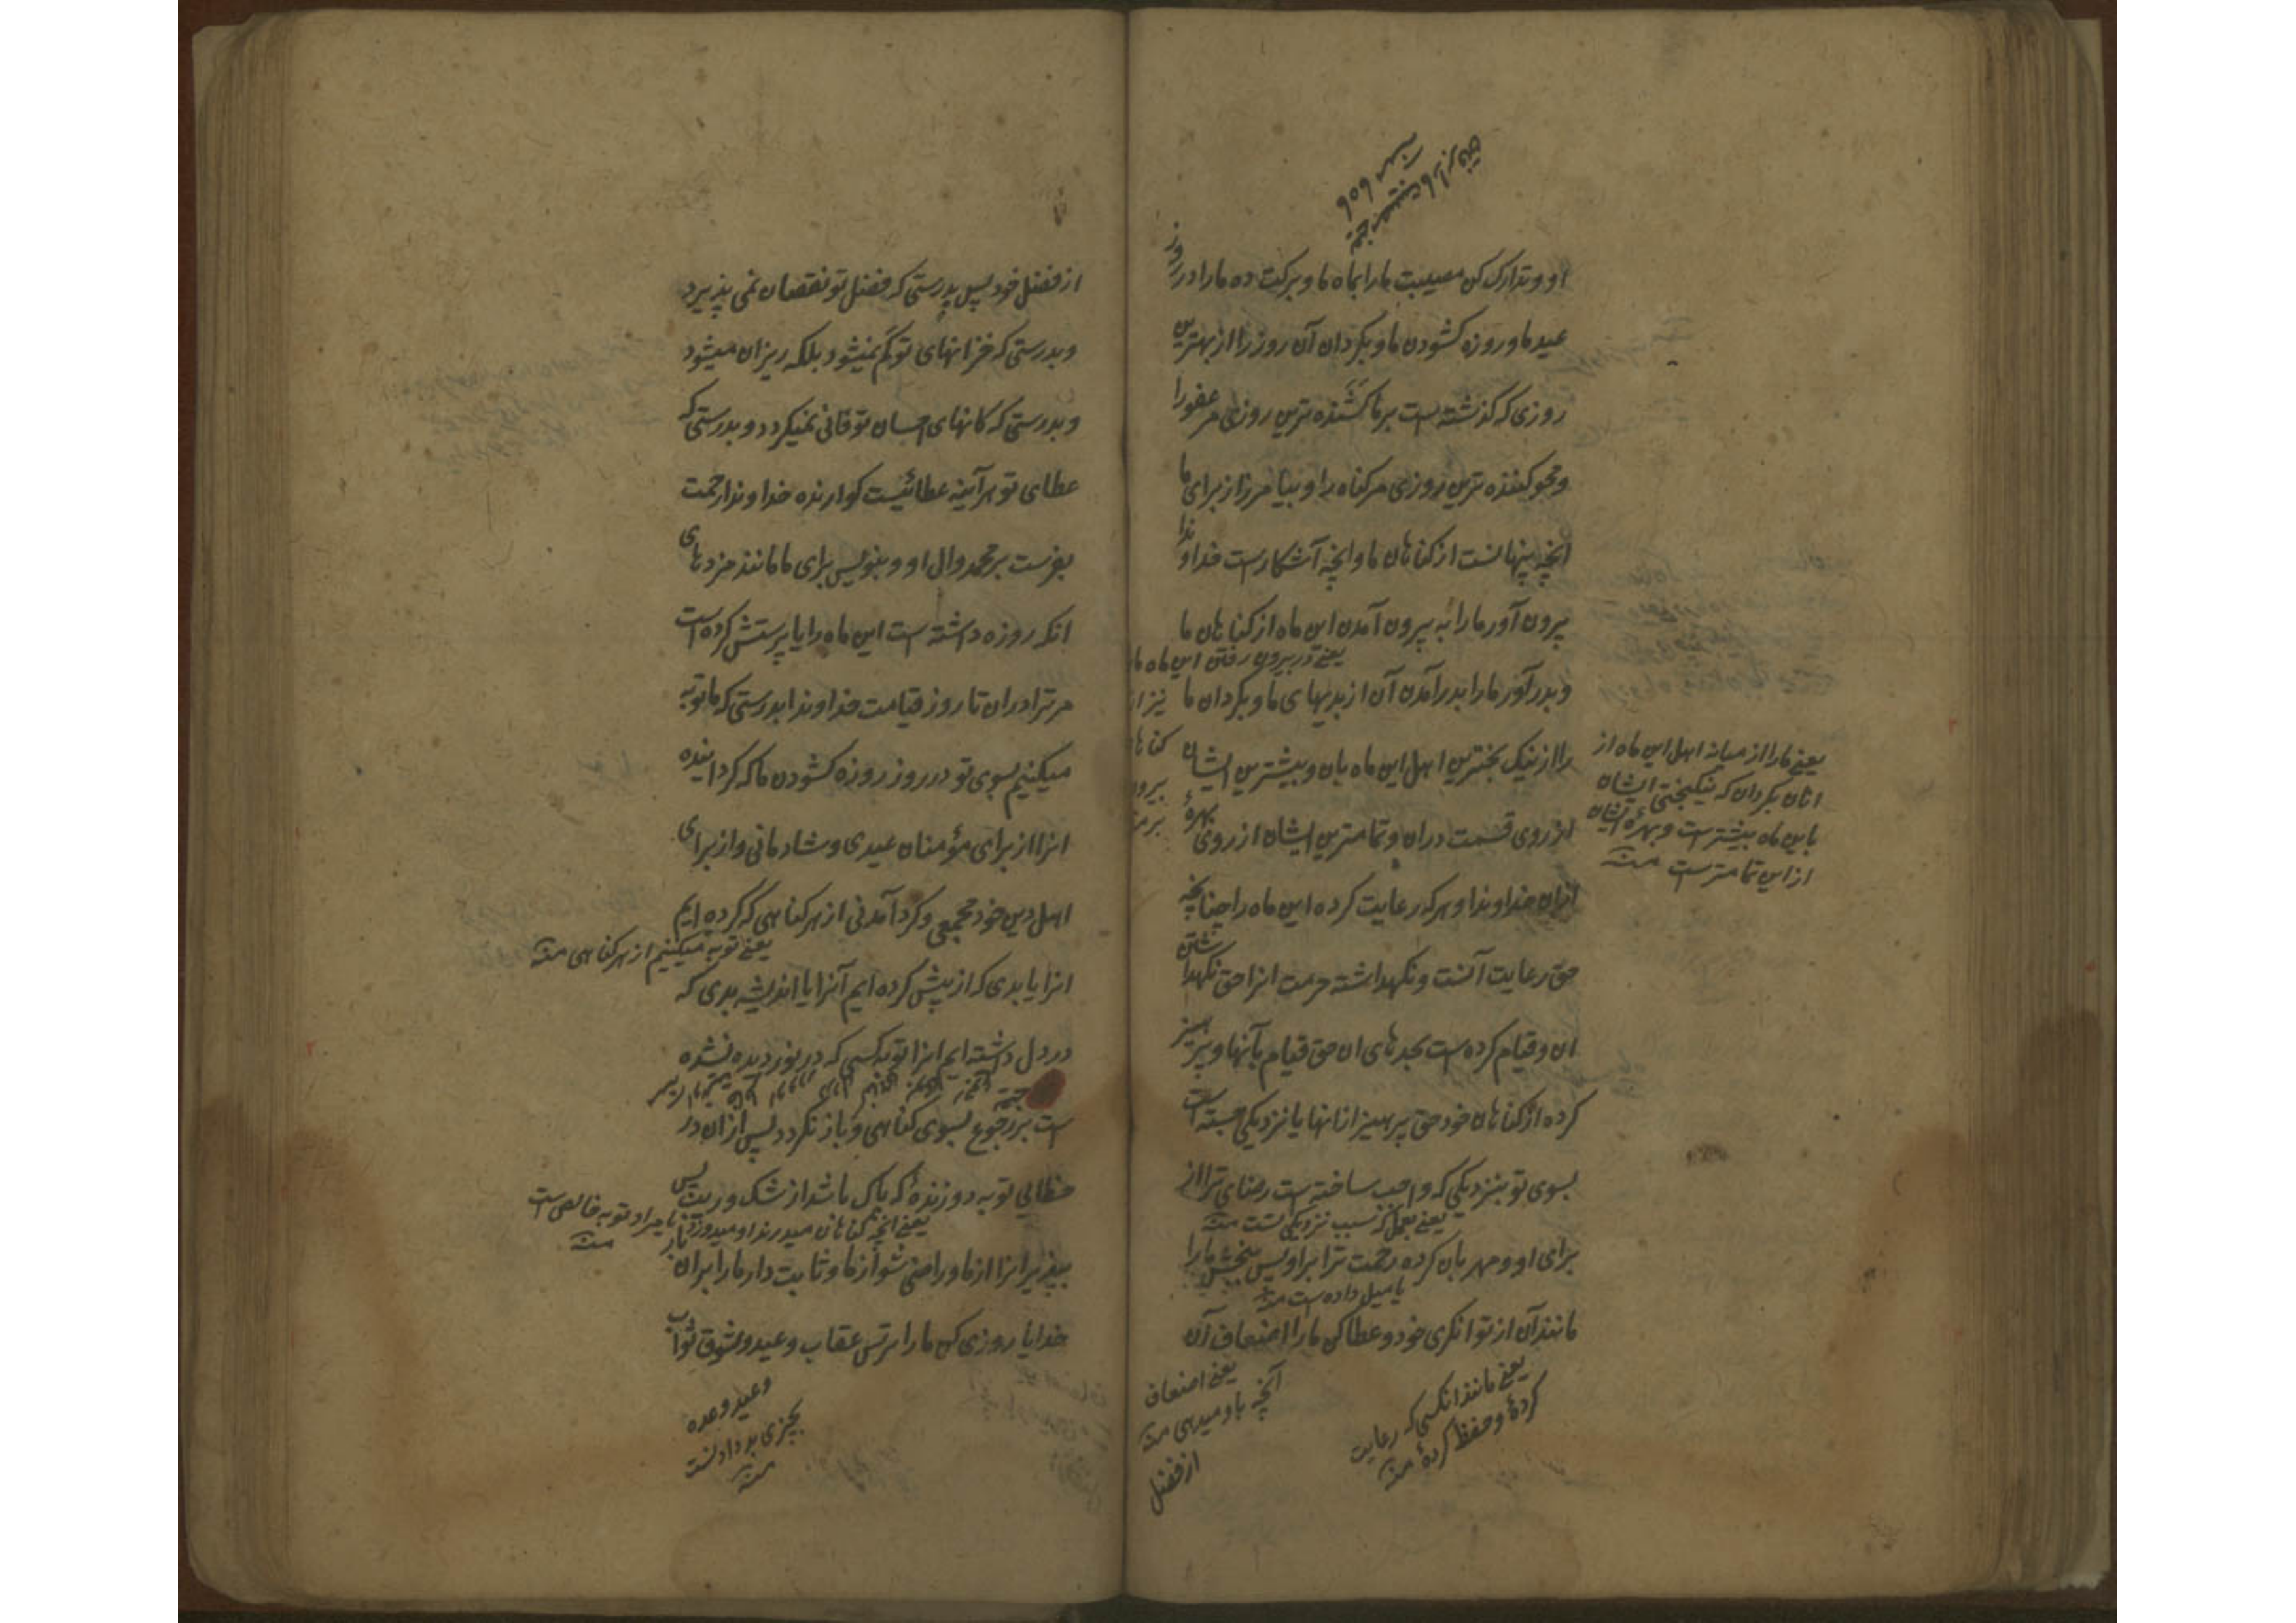 او و تدارک کن مصیبت ما را بماه ما و برکت ده ما را در روز
عید ما و روزه کشودن ما و بکردان آن روز را از بهترین
روزی که گذشته است بر ما کشنده ترین روزی مر عفو را
و محو کننده ترین روزی مر کناه را و بیامرز از برای ما
انچه پنهانست از کناهان ما و انچه آشکارست خداوندا
بیرون آور ما را به بیرون آمدن این ماه از کناهان ما
یعنے در بیرون رفتن این ماه ما
و بدر آور ما را بدر آمدن آن از بدیهای ما و بکردان ما
نیز از
را از نیک بختترین اهل این ماه بان و بیشترین ایشان
کناها
بیرو
از روی قسمت دران و تمامترین ایشان از روی بهرهٔ
یعنے ما را از میانه اهل این ماه از
انان بکردان که نیکبختی ایشان
باین ماه بیشترست و بهرهٔ ایشان
از این تمامترست منہ
ازان خداوندا و هر که رعایت کرده این ماه را چنانچه
حق رعایت آنست و نکهداشته حرمت انرا حق نکهداشتن
ان و قیام کرده است بحدهای ان حق قیام بآنها و پرهیز
کرده از کناهان خود حق پرهیز ازانها یا نزدیکی جسته است
بسوی تو بنزدیکی که واجب ساخته است رضای ترا از
یعنے بعملی که سبب نزدیکی تست منہ
برای او و مهربان کرده رحمت ترا بر او پس ببخش ما را
یا میل داده است منہ
مانند آن از توانکری خود و عطا کن ما را اضعاف آن
یعنے مانند انکسی که رعایت
کردهٔ و حفظ کردهٔ منہ
یعنے اضعاف
آنچه باو میدهی منہ
از فضل
از فضل خود پس بدرستی که فضل تو نقصان نمی پذیرد
و بدرستی که خزانهای تو کم نمیشود بلکه ریزان میشود
و بدرستی که کانهای احسان تو فانی نمیکردد و بدرستی که
عطای تو هر آینه عطائیست کوارنده خداوندا رحمت
بفرست بر محمد و ال او و بنویس برای ما مانند مزدهای
انکه روزه داشته است این ماه را یا پرستش کرده است
مر ترا دران تا روز قیامت خداوندا بدرستی که ما توبه
میکنیم بسوی تو در روز روزه کشودن ما که کردانیده
انرا از برای مؤمنان عیدی و شادمانی و از برای
اهل دین خود مجمعی و کرد آمدنی از هر کناهی که کرده ایم
یعنے توبه میکنیم از هر کناهی منہ
انرا یا بدی که از پیش کرده ایم آنرا یا اندیشه بدی که
در دل داشته ایم انرا توبه کسی که در نوردیده نشده
است بر رجوع بسوی کناهی و باز نکردد پس از ان در
خطائی توبه دوزندهٔ که پاک باشد از شک و ریب پس
یعنے انچه کناهان میدرند او میدوزد یا مراد توبه خالص است
منہ
بپذیر انرا از ما و راضی شو از ما و ثابت دار ما را بران
خدایا روزی کن ما را ترس عقاب وعید و شوق ثواب
وعید وعده
بچیزی بد دادنست
منہ